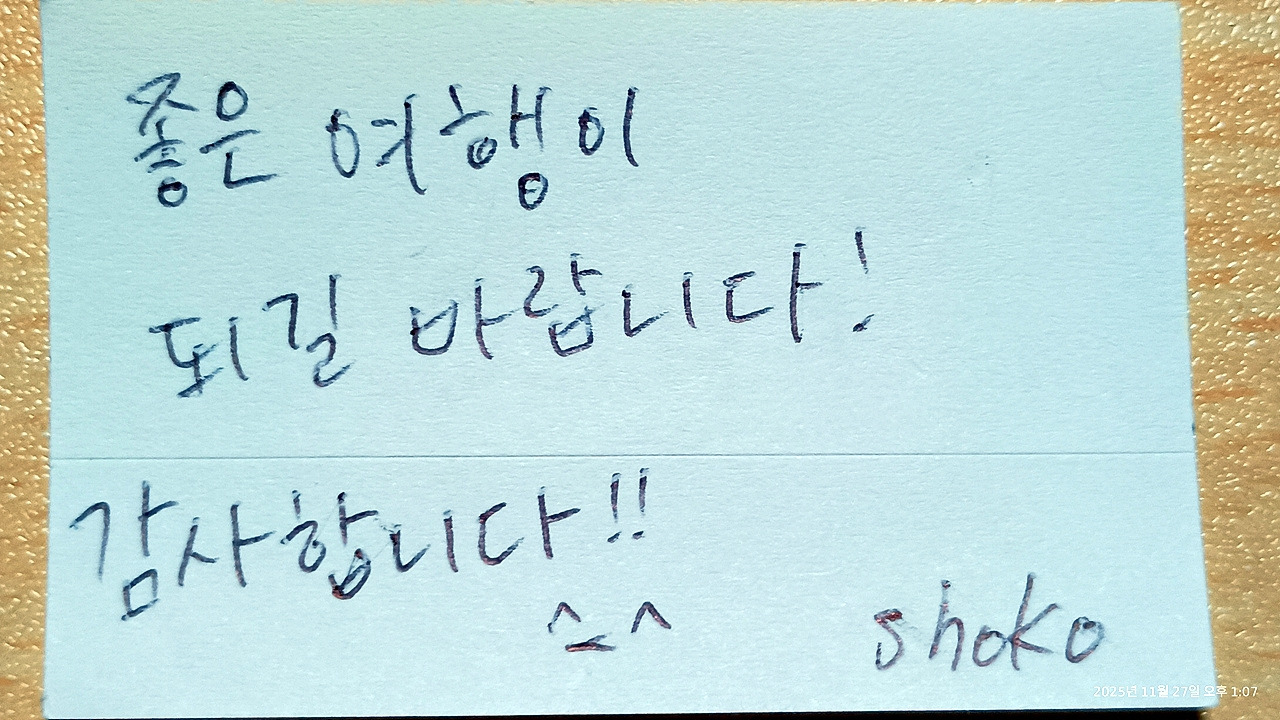 좋은 여행이
되길 바랍니다!
감사합니다!!
^_^
shoko
2025년 11월 27일 오후 1:07